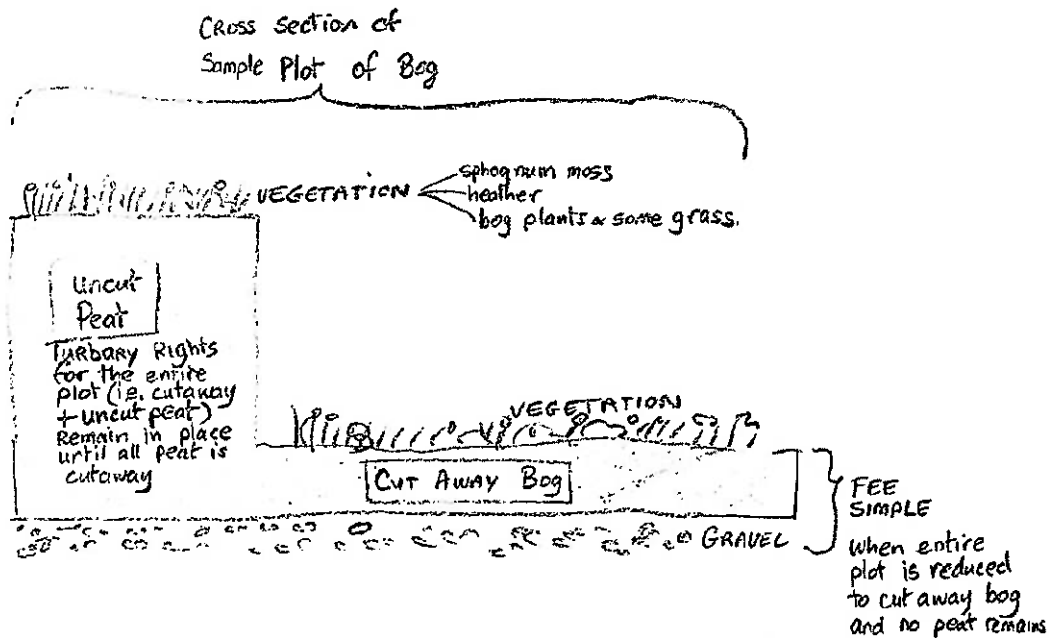 Cross section of
Sample Plot of Bog
VEGETATION
sphognum moss
heather
bog plants & some grass.
Uncut
Peat
Turbary Rights
for the entire
plot (i.e. cutaway
+ uncut peat)
Remain in place
until all peat is
cutaway
VEGETATION
Cut Away Bog
GRAVEL
FEE
SIMPLE
when entire
plot is reduced
to cut away bog
and no peat remains